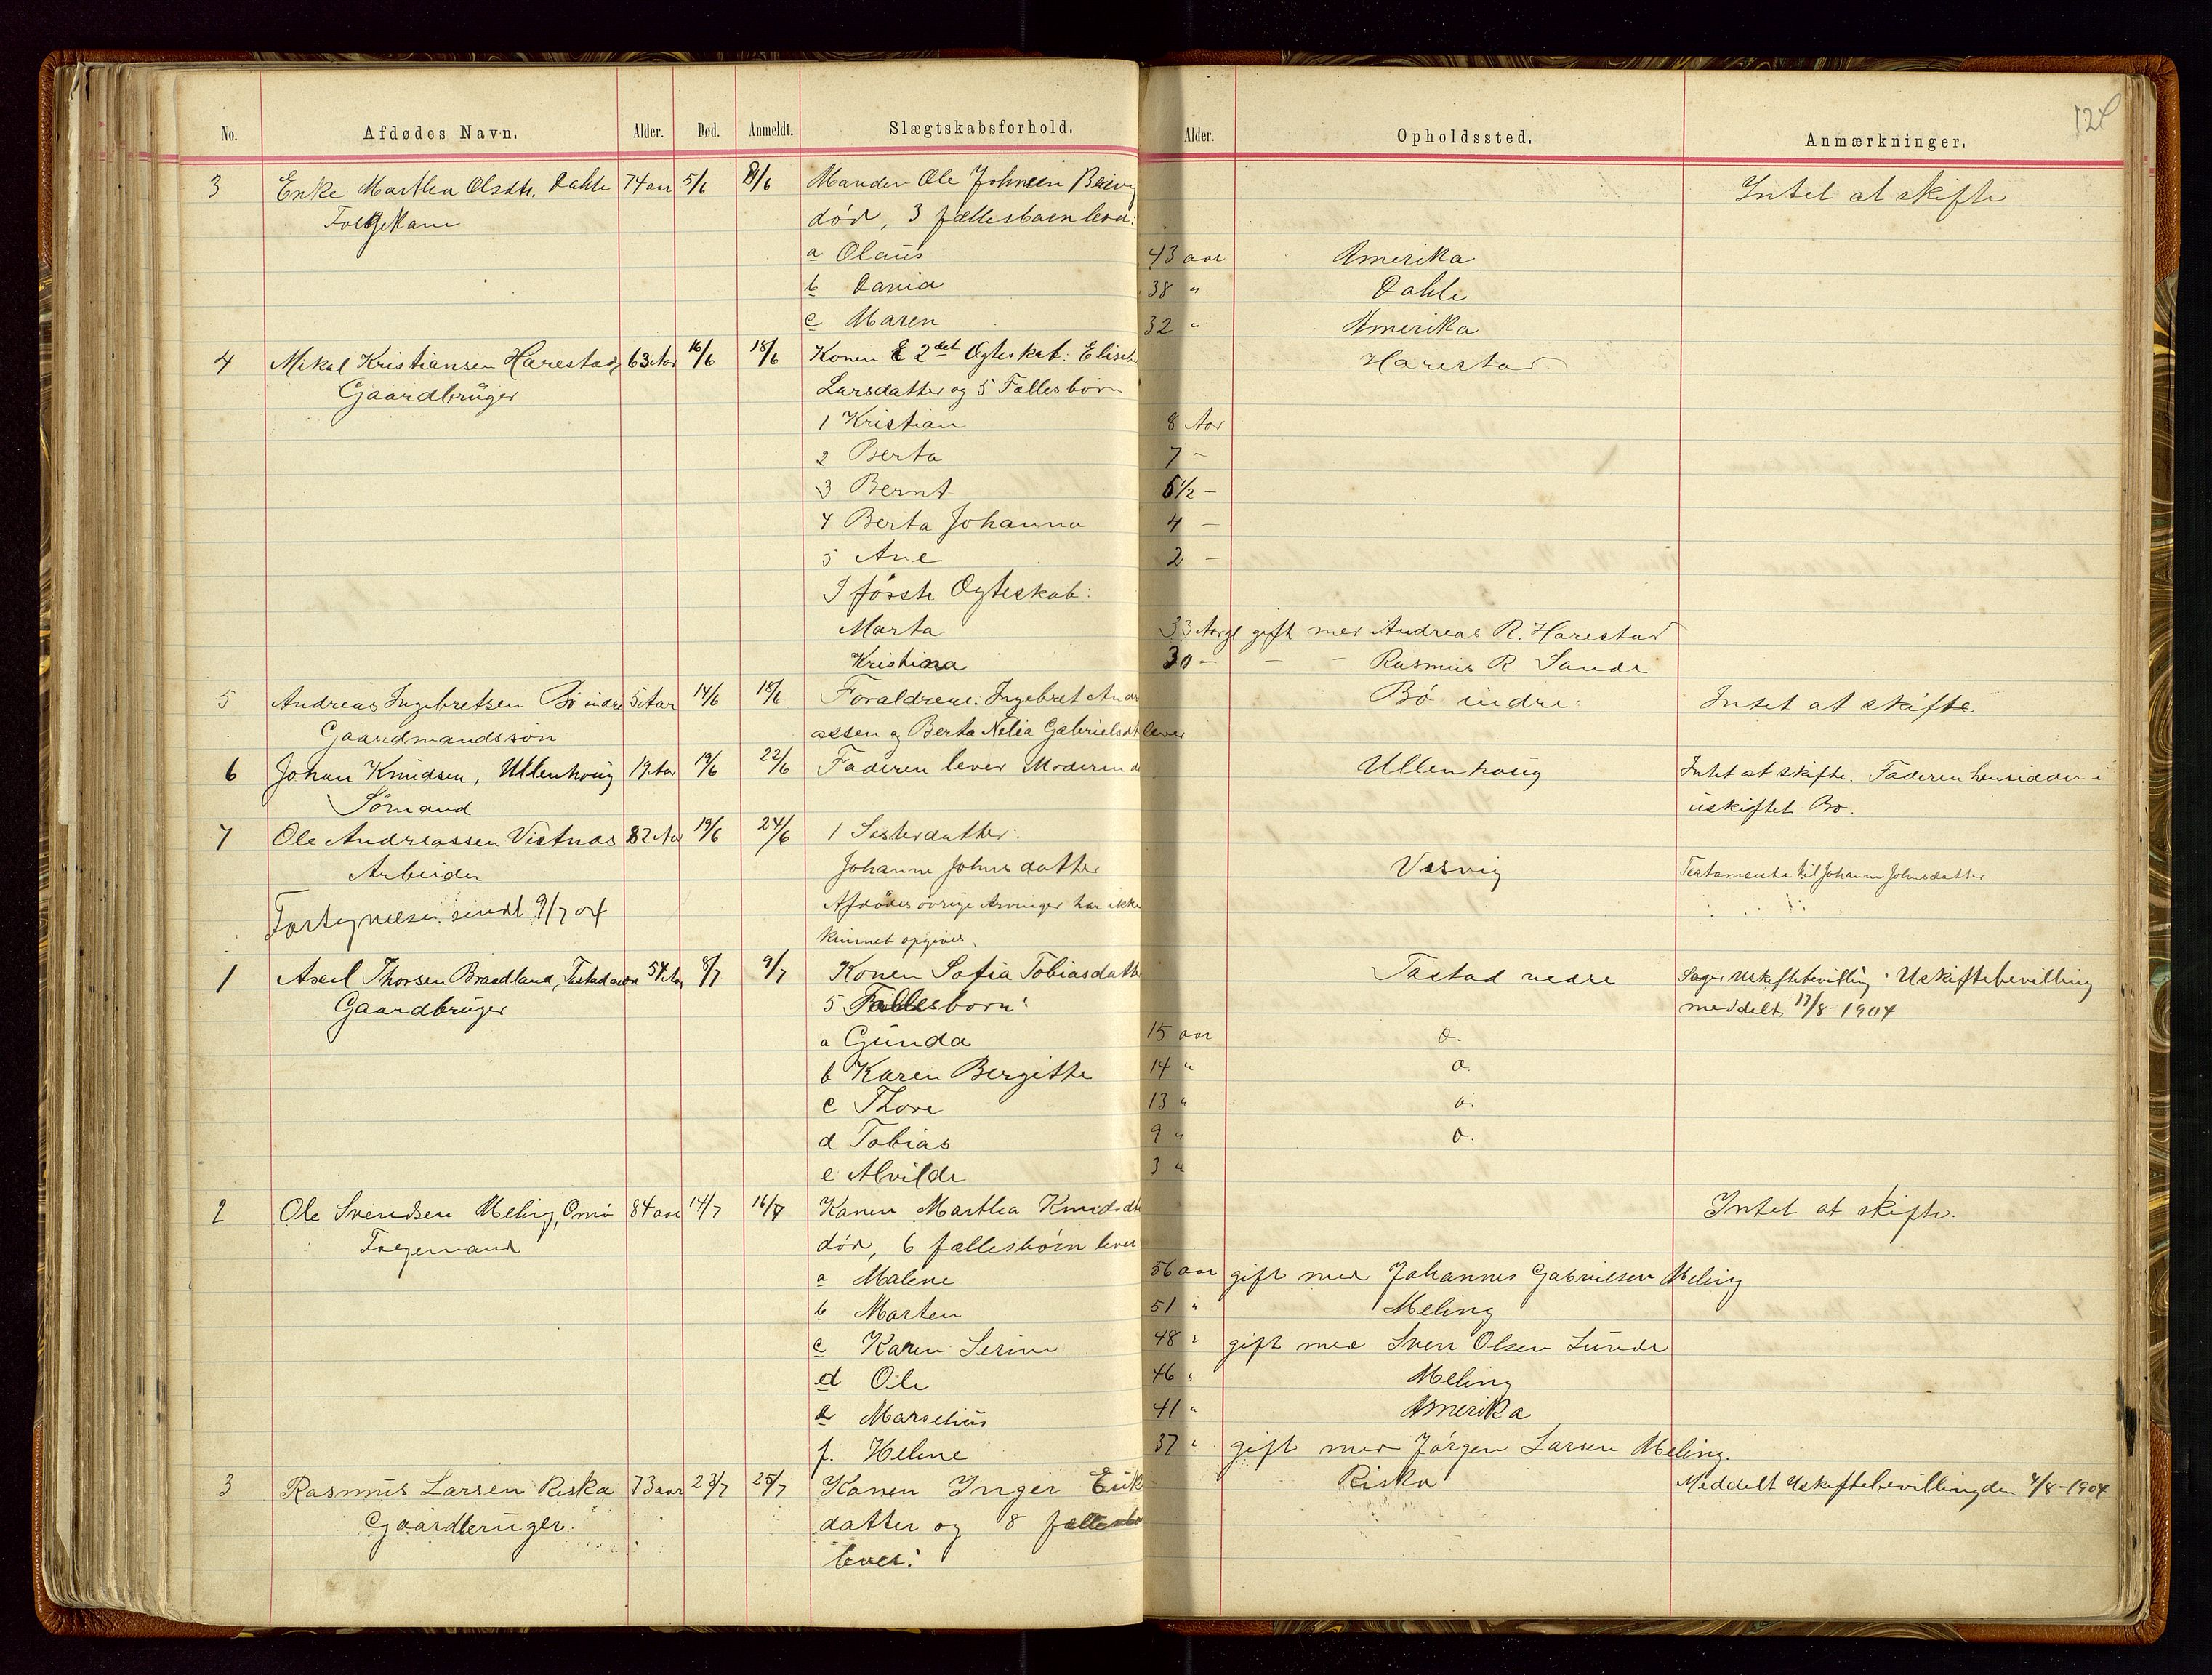 No. Afdødes Navn. Alder. Død. Anmeldt. Slægtskabsforhold. Alder. Opholdssted. Anmærkninger.
124
3 Enke Marthea Olsdtr. Dahle 74 aar 5/6 8/6 Manden Ole Johnsen Intet at skifte
Folgekone død, 3 fællesbørn lever:
a Olaus 43 aar Amerika
b Dania 38 " Dahle
c Maren 32 " Amerika
4 Mikal Kristiansen Harestad 63 Aar 16/6 18/6 Konen 2det Ogteskab: Harestad
Gaardbruger Larsdatter og 5 Fællesbørn
1 Kristian 8 Aar
2 Berta 7 -
3 Bernt 5 1/2 -
4 Berta Johanna 4 -
5 Ane 2 -
I første Ogteskab:
Marta 33 Aar gl gift med Andreas R. Harestad
Kristina 30 - - - Rasmus R. Sande
5 Andreas Ingebretsen Bø indre 5 Aar 14/6 18/6 Foraldrene: Ingebret Andr Bø indre Intet at skifte
Gaardmandssøn assen og Berta Nelia Gabrielsdt lever
6 Johan Knudsen, Ullenhoug 19 Aar 19/6 22/6 Faderen lever Moderen d Ullenhoug Intet at skifte. Faderen hensidder i
Sømand uskiftet Bo.
7 Ole Andreassen Vistnæs 82 Aar 19/6 24/6 1 Søsterdatter:
Arbeider Johanne Johnsdatter Vasvig Testamente til Johanne Johnsdatter
Fortegnelsen sendt 9/7 04 Afdødes øvrige Arvinger har ikke
kunnet opgives.
1 Axel Thorsen Braadland, Tastad 54 Aar 8/7 9/7 Konen Sofia Tobiasdatt Tastad nedre Søger Uskiftebevilling. Uskiftebevilling
Gaardbruger 5 Fællesborn: meddelt 17/8-1904
a Gunda 15 aar do.
b Karen Bergitte 14 " do
c Thore 13 " do.
d Tobias 9 " do.
e Alvilde 3 "
2 Ole Svendsen Meling, Omø 84 aar 14/7 16/7 Konen Marthea Knudsdtr Intet at skifte.
Folgemand død, 6 fællesbørn lever
a Malene 56 aar gift med Johannes Gabrielsen Meling
b Morten 51 " Meling
c Karen Serine 48 " gift med Sven Olsen Lunde
d Ole 46 " Meling
e Marselius 41 " Amerika
f. Helene 37 " gift med Jørgen Larsen Meling.
3 Rasmus Larsen Riska 73 aar 23/7 25/7 Konen Inger Erik Riska Meddelt Uskiftebevilling den 4/8-1904
Gaardbruger. datter og 8 fællesbø
lever: